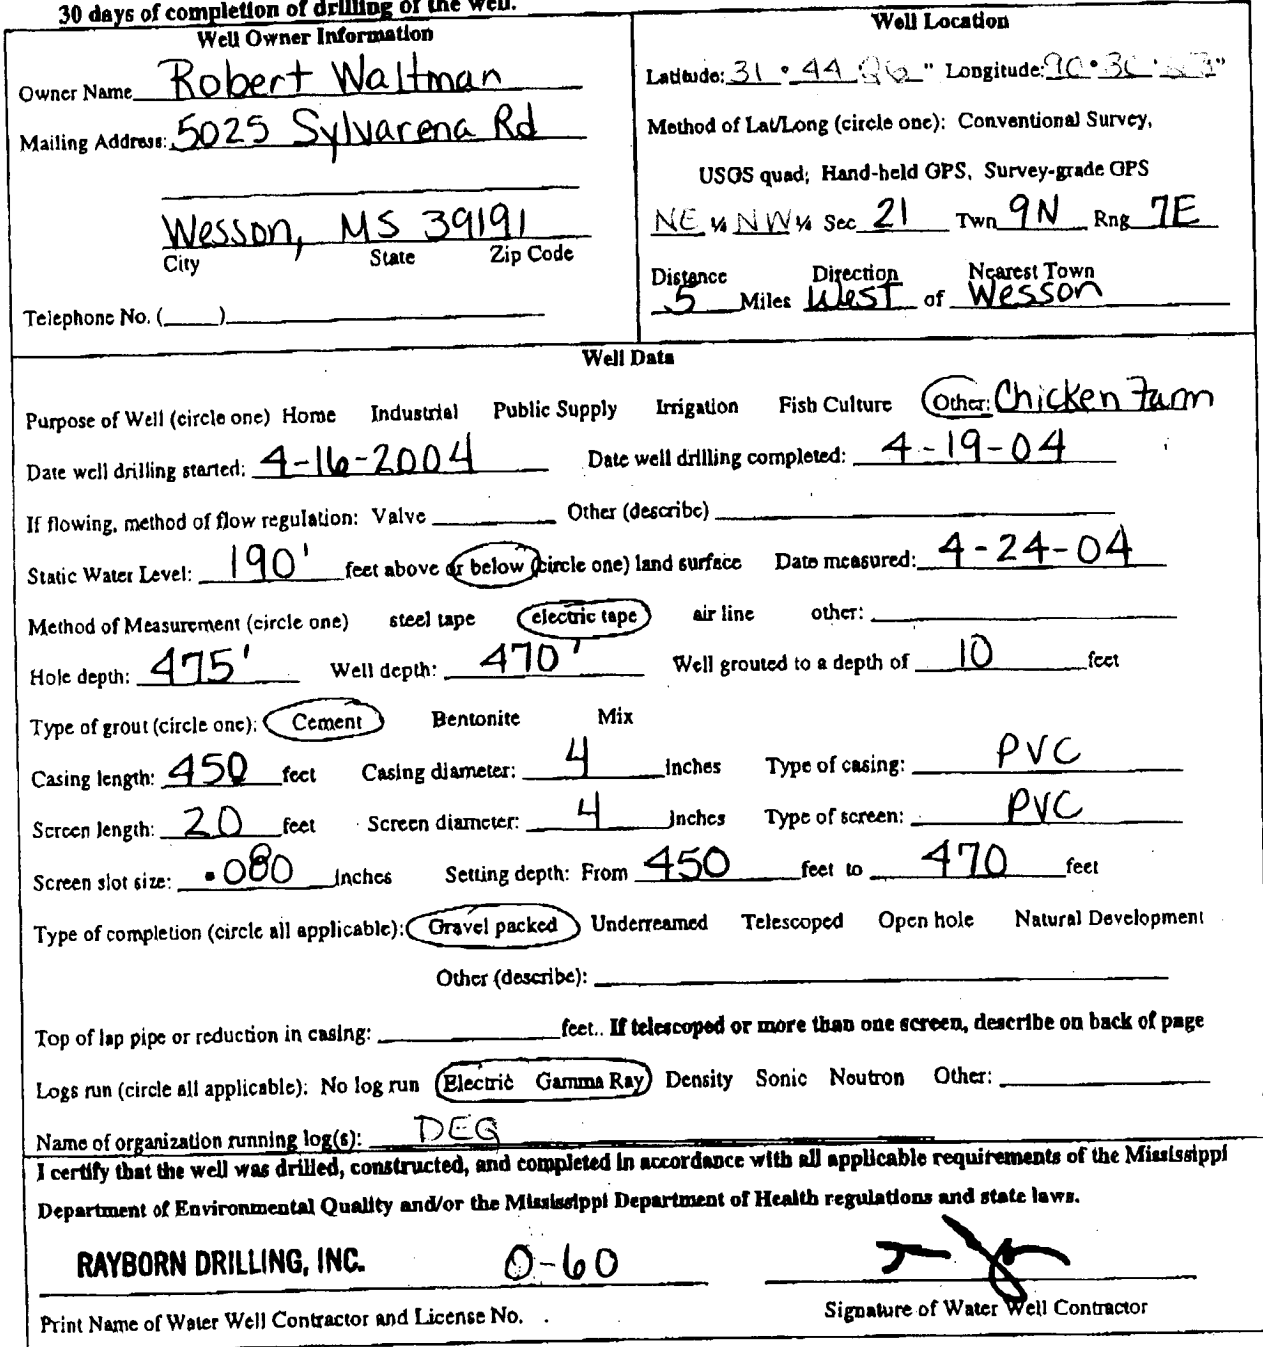 30 days of completion of drilling of the well.
Well Owner Information
Owner Name Robert Waltman
Mailing Address: 5025 Sylvarena Rd
Wesson, MS 39191
City State Zip Code
Telephone No. (____)
Well Location
Latitude: 31 ° 44 " Longitude: 90 ° 30 ' "
Method of Lat/Long (circle one): Conventional Survey,
USGS quad, Hand-held GPS, Survey-grade GPS
NE ¼ NW ¼ Sec 21 Twn 9N Rng 7E
Distance Direction Nearest Town
5 Miles West of Wesson
Well Data
Purpose of Well (circle one) Home Industrial Public Supply Irrigation Fish Culture Other: Chicken Farm
Date well drilling started: 4-16-2004 Date well drilling completed: 4-19-04
If flowing, method of flow regulation: Valve Other (describe)
Static Water Level: 190' feet above or below (circle one) land surface Date measured: 4-24-04
Method of Measurement (circle one) steel tape electric tape air line other:
Hole depth: 475' Well depth: 470' Well grouted to a depth of 10 feet
Type of grout (circle one): Cement Bentonite Mix
Casing length: 450 feet Casing diameter: 4 inches Type of casing: PVC
Screen length: 20 feet Screen diameter: 4 inches Type of screen: PVC
Screen slot size: .080 inches Setting depth: From 450 feet to 470 feet
Type of completion (circle all applicable): Gravel packed Underreamed Telescoped Open hole Natural Development
Other (describe):
Top of lap pipe or reduction in casing: feet.. If telescoped or more than one screen, describe on back of page
Logs run (circle all applicable): No log run Electric Gamma Ray Density Sonic Neutron Other:
Name of organization running log(s): DEQ
I certify that the well was drilled, constructed, and completed in accordance with all applicable requirements of the Mississippi
Department of Environmental Quality and/or the Mississippi Department of Health regulations and state laws.
RAYBORN DRILLING, INC. 0-60
Print Name of Water Well Contractor and License No.
Signature of Water Well Contractor